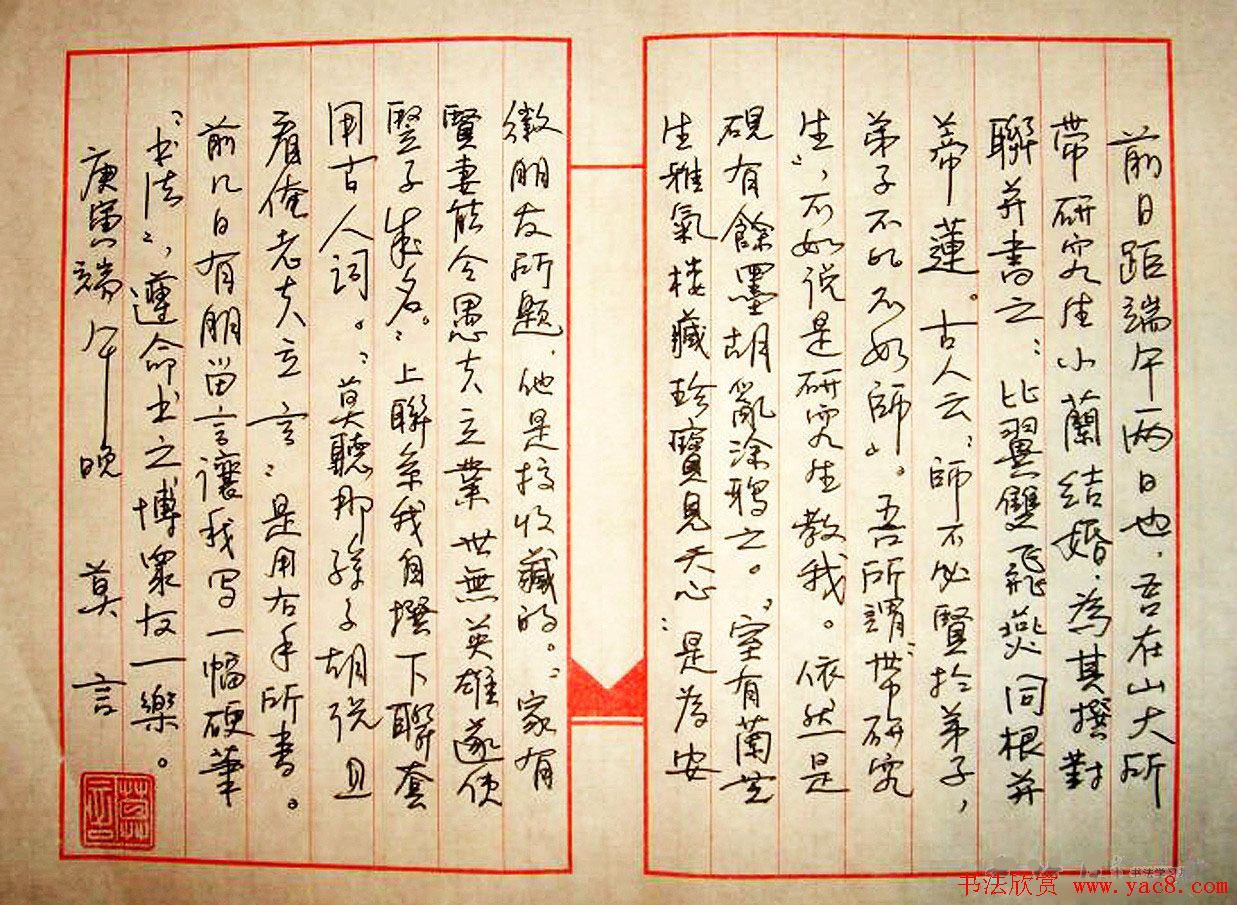 前日距端午两日也.吾在山大所
带研究生小蘭结婚.為其撰對
聯并書之:比翼雙飛燕同根并
蒂蓮。古人云:師不必賢於弟子,
弟子不必不如師。吾所謂"带研究
生",不如说是研究生教我。依然是
硯有餘墨胡亂涂鴉之。"室有蘭芝
生雅氣楼藏珍寶見天心"是為安
徽朋友所题.他是搞收藏的。"家有
賢妻能令愚夫立業世無英雄遂使
竪子成名。"上聯系我自撰下聯套
用古人词。"莫聽那孫子胡说且
看俺老夫立言"是用右手所書。
前几日有朋留言讓我写一幅硬筆
"书法",遵命书之博衆友一樂。
庚寅端午晚 莫言
莫言
书法欣赏 www.yac8.com